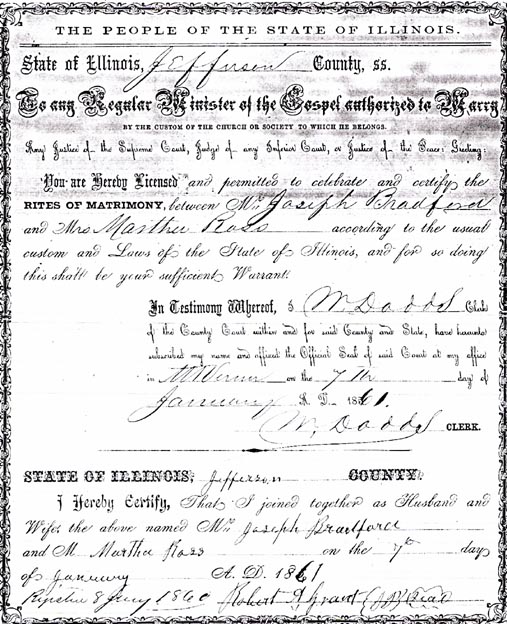 THE PEOPLE OF THE STATE OF ILLINOIS.
State of Illinois, Jefferson County, ss.
To any Regular Minister of the Gospel authorized to Marry
BY THE CUSTOM OF THE CHURCH OR SOCIETY TO WHICH HE BELONGS.
Any Justice of the Supreme Court, Judge of any Inferior Court, or Justice of the Peace: Greeting:
You are Hereby Licensed and permitted to celebrate and certify the
RITES OF MATRIMONY, between Mr. Joseph Bradford
and Mrs Martha Ross according to the usual
custom and Laws of the State of Illinois, and for so doing
this shall be your sufficient Warrant.
In Testimony Whereof, I, W. Dodds Clerk
of the County Court within and for said County and State, have hereunto
subscribed my name and affixed the Official Seal of said Court at my office
in Mt Vernon on the 7th day of
January A. D. 1861.
W. Dodds CLERK.
STATE OF ILLINOIS, Jefferson COUNTY.
I Hereby Certify, That I joined together as Husband and
Wife, the above named Mr. Joseph Bradford
and M. Martha Ross on the 7th day
of January A. D. 1861
8 Jany 1860 Robert A Grant